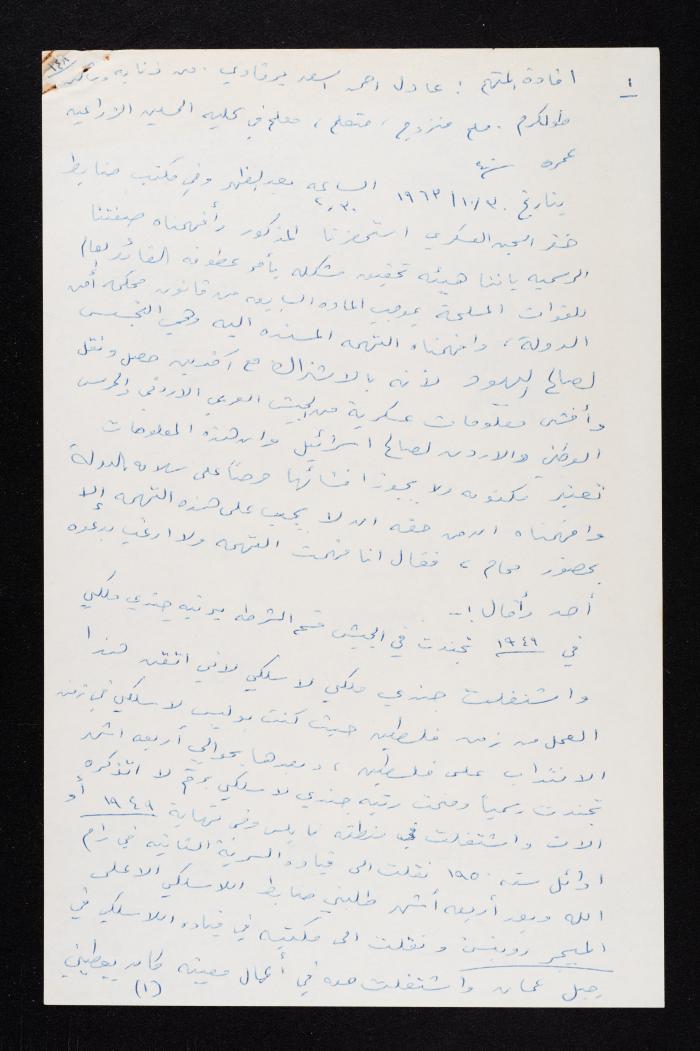 ١٤٨
١
افادة المتهم : عادل احمد اسعد من وسكان
طولكرم . مسلم متزوج ، متعلم ، معلم في كلية الحسين الزراعيه
عمره سنه
بتاريخ ٣٠/١٠/١٩٦٣ الساعه ٢٫٣٠ بعد الظهر وفي مكتب ضابط
خفر السجن العسكري استحضرنا المذكور وأفهمناه صفتنا
الرسميه باننا هيئه تحقيقيه مشكله بأمر عطوفه القائد العام
للقوات المسلحة بموجب الماده السابعه من قانون محكمه أمن
الدولة ، وافهمناه التهمه المسنده اليه وهي التجسس
لصالح اليهود لأنه بالاشتراك مع آخرين حصل ونقل
وأفشى معلومات عسكرية عن الجيش العربي الاردني والحرس
الوطني والاردن لصالح اسرائيل وان هذه المعلومات
تعتبر مكتومه ولا يجوز افشائها حرصاً على سلامه الدولة
وافهمناه ان من حقه ان لا يجيب على هذه التهمه إلا
بحضور محام ، فقال انا فهمت التهمه ولا ارغب بدعوه
أحد وأقال :ـ
في ١٩٤٩ تجندت في الجيش قسم الشرطه برتبه جندي ملكي
واشتغلت جندي ملكي لاسلكي لاني اتقن هذا
العمل من زمن فلسطين حيث كنت بوليس لاسلكي في زمن
الانتداب على فلسطين ، وبعدها بحوالي أربعه اشهر
تجندت رسمياً ومنحت رتبه جندي لاسلكي برقم لا اتذكره
الان واشتغلت في منطقه نابلس وفي نهاية ١٩٤٩ أو
اوائل سنه ١٩٥٠ نقلت الى قياده السرية الثانيه في رام
الله وبعد أربعه أشهر طلبني ضابط اللاسلكي الاعلى
الميجر روبنسن ونقلت الى مكتبه في قياده اللاسلكي في
جبل عمان واشتغلت معه في أعمال معينه كان يعطيني
(١)